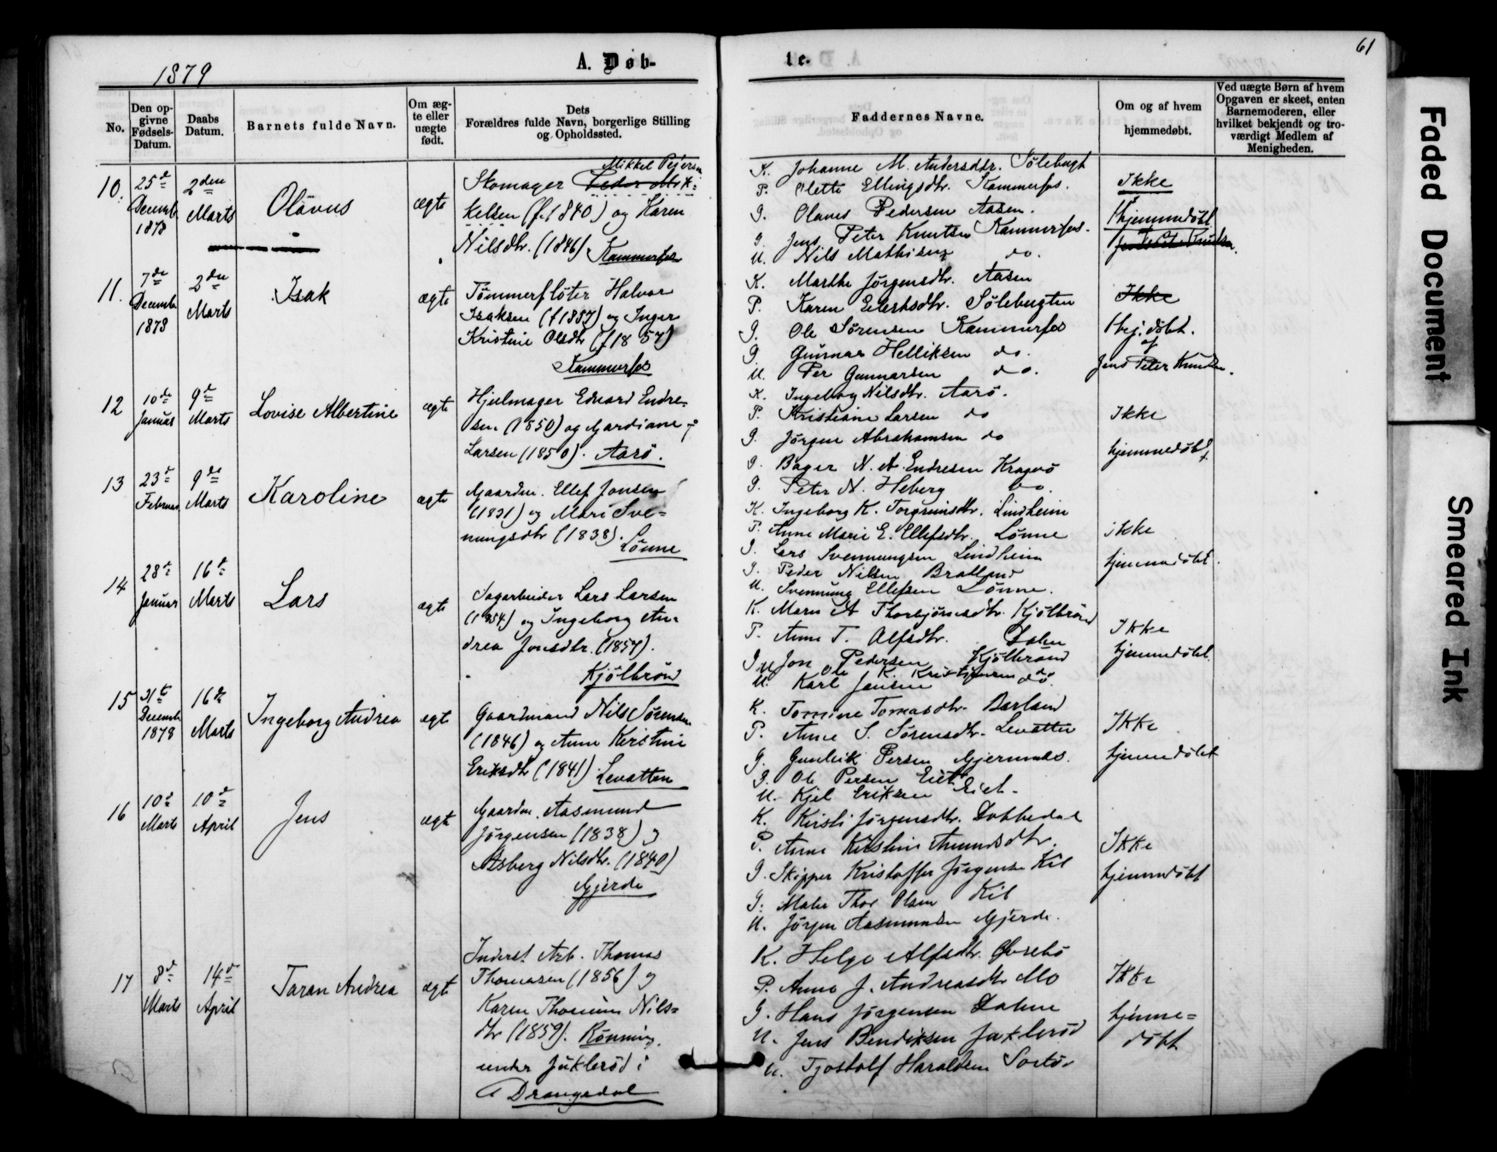 61
1879
A. Døb-
te.
No.
Den op-
givne
Fødsels-
Datum.
Daabs
Datum.
Barnets fulde Navn.
Om æg-
te eller
uægte
født.
Dets
Forældres fulde Navn, borgerlige Stilling
og Opholdssted.
Faddernes Navne.
Om og af hvem
hjemmedøbt.
Ved uægte Børn af hvem
Opgaven er skeet, enten
Barnemoderen, eller
hvilket bekjendt og tro-
værdigt Medlem af
Menigheden.
10.
25de
Decembr
1878
2den
Marts
Olàvus
ægte
Mikkel Pejersen
Skomager Peder Mik-
kelsen (f. 1840) og Karen
Nilsdtr (1846) Kammerfos
K. Johanne M. Andersdtr. Sølebugt
P. Olette Ellingsdtr. Kammerfos.
G. Olaves Pedersen Aasen.
G. Jens Peter Knutsen Kammerfos.
U. Nils Mathisen do.
Ikke
hjemmedøbt
11.
7de
Decembr
1878
2den
Marts
Isak
ægte
Tømmerfløter Halvor
Isaksen (f 1857) og Inger
Kristine Olsdtr (f 1857)
Kammerfos
K. Marthe Jørgensdtr. Aasen
P. Karen Eilertsdtr. Sølebugten
G. Ole Sørensen Kammerfos
G. Gunnar Helliksen do.
U. Per Gunnarsen do.
Ikke
hj. døbt.
af
Jens Peter Knudsen.
12
10de
Januar
9de
Marts
Lovise Albertine
ægte
Hjulmager Edvard Endre-
sen (1850) og Mardiane
Larsen (1850). Aarø.
K. Ingeborg Nilsdtr. Aarø.
P. Kristiane Larsen do
G. Jørgen Abrahamsen do
G. Bager N. A. Endresen Kragerø
G. Peter N. Heberg do.
Ikke
hjemmedøbt
13
23de
Februar
9de
Marts
Karoline
ægte
Gaardm. Ellef Jonsen
(1831) og Mari Sve-
nungsdtr (1838).
Lønne
K. Ingeborg K. Torgrimsdtr. Lindheim
P. Anne Marie E. Ellefsdtr. Lønne
G. Lars Svennungsen Lindheim
G. Peder Nilsen Bratland
U. Svennung Ellefsen Lønne.
ikke
hjemmedøbt.
14
28de
Januar
16de
Marts
Lars
ægte
Sagarbeider Lars Larsen
(1854) og Ingeborg An-
drea Jonsdtr. (1857).
Kjølbrønd
K. Maren A Thorbjørnsdtr. Kjølbrønd
P. Anne T. Alfsdtr. Dalen
G. Jon Pedersen Kjølbrønd
U. Ole K. Kristiansen do
U. Karl Jansen do.
Ikke
hjemmedøbt.
15
31te
Decembr
1878
16de
Marts
Ingeborg Andrea
ægt
Gaardmand Nils Sørensen
(1846) og Anne Kerstine
Eriksdtr (1841) Levatten
K. Tomine Tomasdtr. Barland
P. Anne S. Sørensdtr. Levatten
G. Gunleik Persen Gjernes.
G. Ole Persen Eiet
U. Kjel Eriksen Eiet.
Ikke
hjemmedøbt
16
10de
Marts
10de
April
Jens
ægte
Gaardm. Aasmund
Jørgensen (1838) og
Asberg Nilsdtr. (1840)
Gjerde
K. Kirsti Jørgensdtr. Dobbedal
P. Anne Kirstine Amundsdtr.
G. Skipper Kristoffer Jørgensen Kil
G. Maler Thor Olsen Kil
U. Jørgen Aasmundsen Gjerde.
Ikke
hjemmedøbt
17
8de
Marts
14de
April
Taran Andrea
ægt
Inderst Arb. Thomas
Thomasen (1856) og
Karen Thomine Nils-
dtr (1859). Rønning,
under Juklerød i
Drangedal
K. Helge Alfsdtr. Øvrebø
P. Anne J. Andreasdtr Mo
G. Hans Jørgensen Dalene
U. Jens Bendiksen Juklerød
U. Tjostolf Haraldsen
Ikke
hjemme-
døbt
Faded Document
Smeared Ink